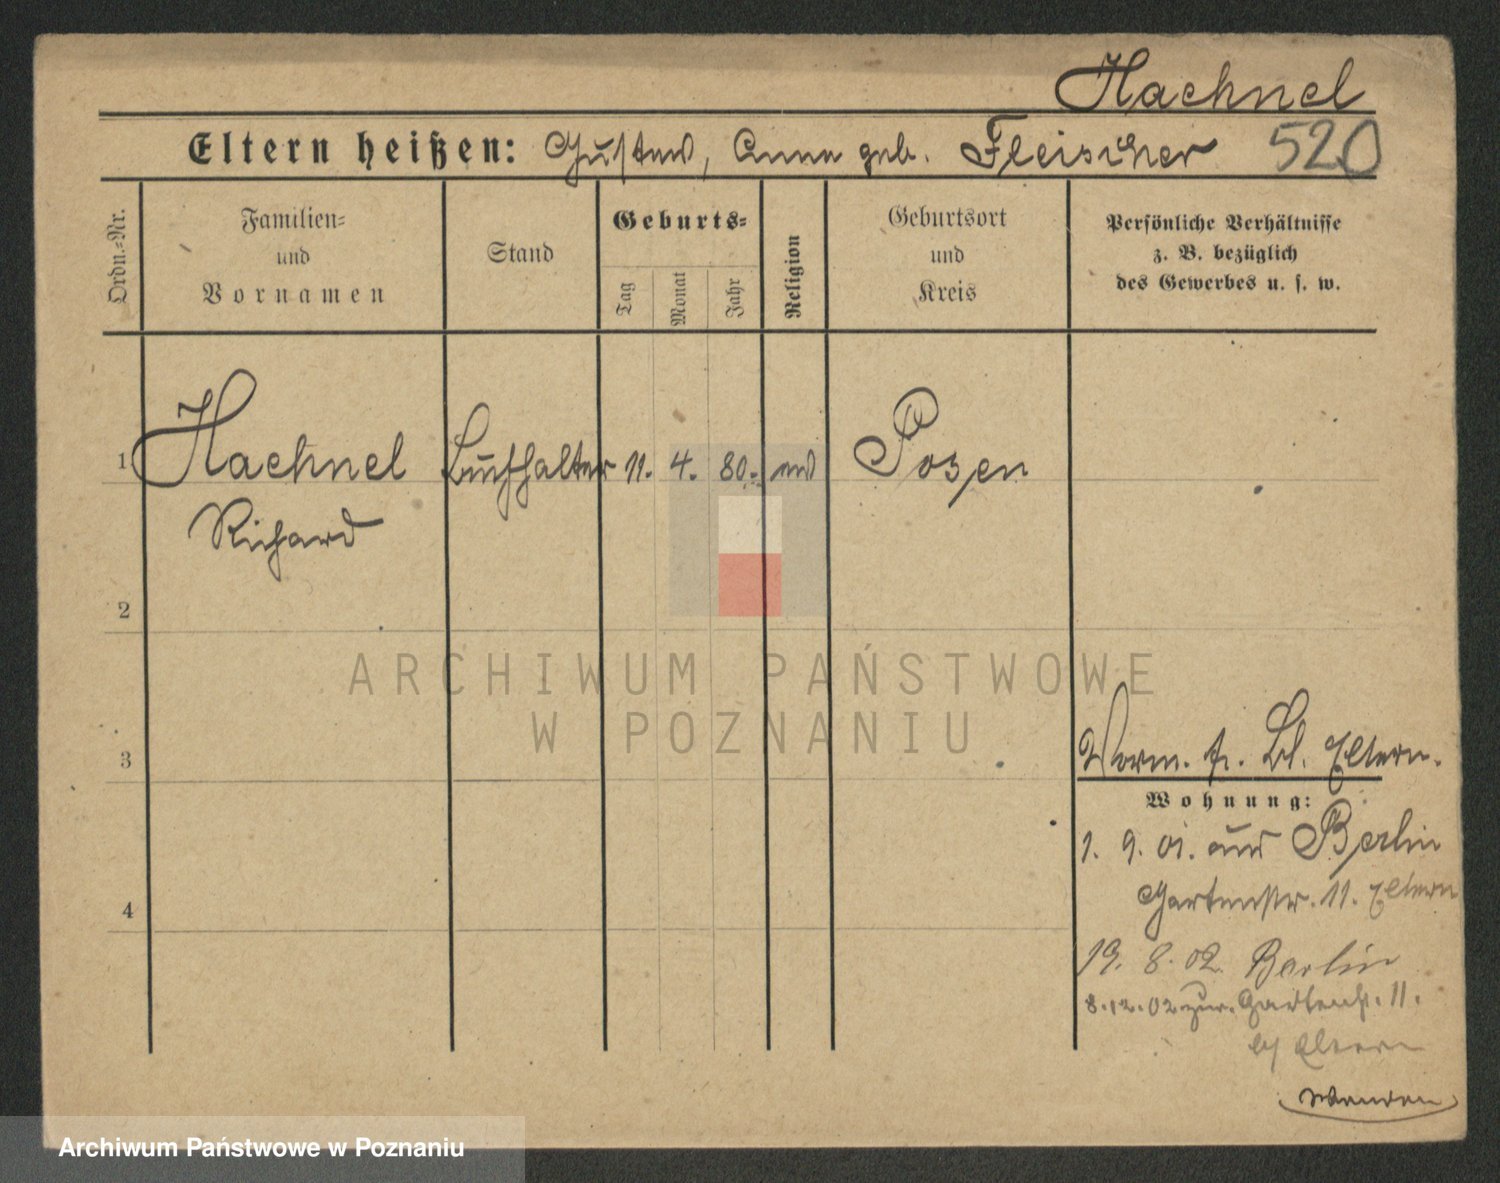 Haehnel
Eltern heißen: Gustav, Anna geb. Fleischer 520
Ordn.=Nr.
Familien=
und
Vornamen
Stand
Geburts=
Tag
Monat
Jahr
Religion
Geburtsort
und
Kreis
Persönliche Verhältnisse
z. B. bezüglich
des Gewerbes u. s. w.
1 Haehnel Buchhalter 11. 4. 80. ev Posen
Richard
2
3
4
Vorm. f. Bl. Eltern.
Wohnung:
1. 9. 01. aus Berlin
Gartenstr. 11. Eltern
19. 8. 02. Berlin
8.12.02 zur. Gartenstr. 11.
b/ Eltern
wenden
ARCHIWUM PAŃSTWOWE
W POZNANIU
Archiwum Państwowe w Poznaniu